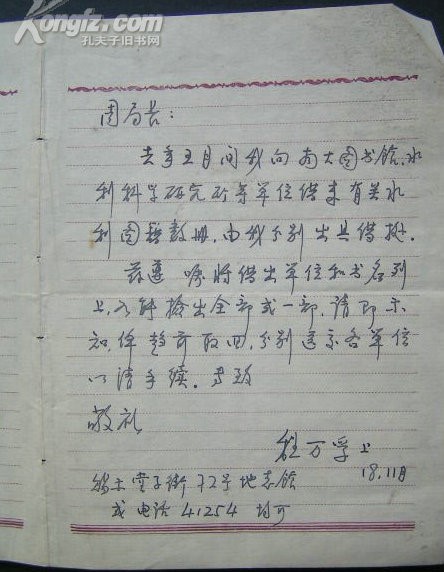 Kongfz.com
孔夫子旧书网
周局长：
去年五月间我向南大图书馆、水
利科学研究所等单位借来有关水
利图籍数册，由我分别出具借据。
兹遵嘱将借出单位和书名列
上，如能检出全部或一部，请即示
知，俾趋前取回，分别送交各单位
以清手续。专致
敬礼
程万孚上
18.11月
赐示堂子街72号地志馆
或电话41254均可